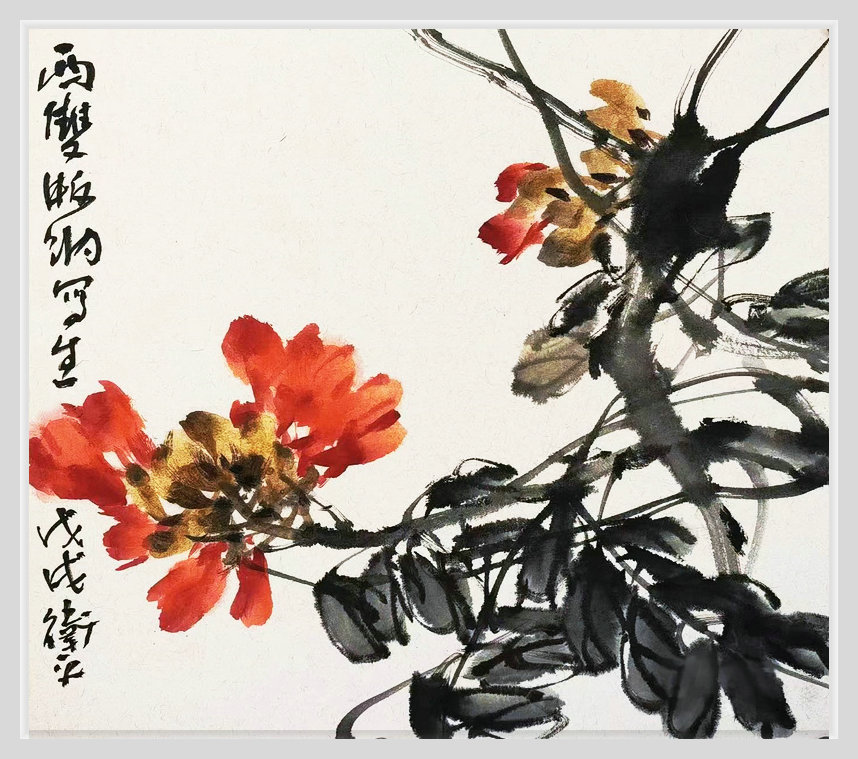 西雙版納写生
戊戌衛平